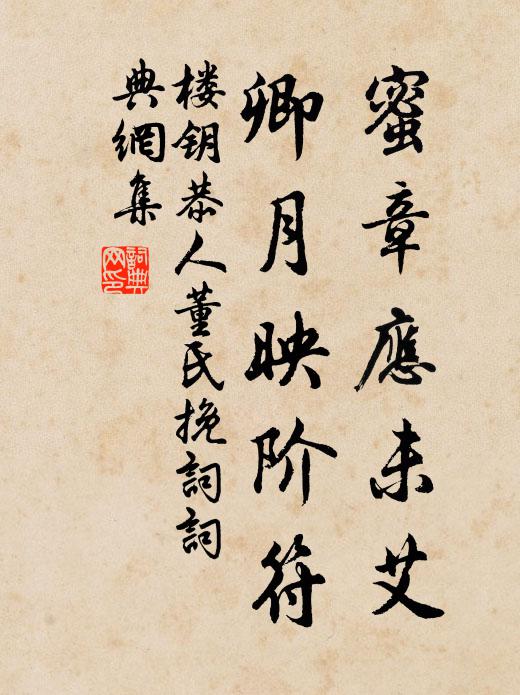 蜜章應未艾
卿月映阶符
楼钥恭人董氏挽詞詞
典網集
詞典網印